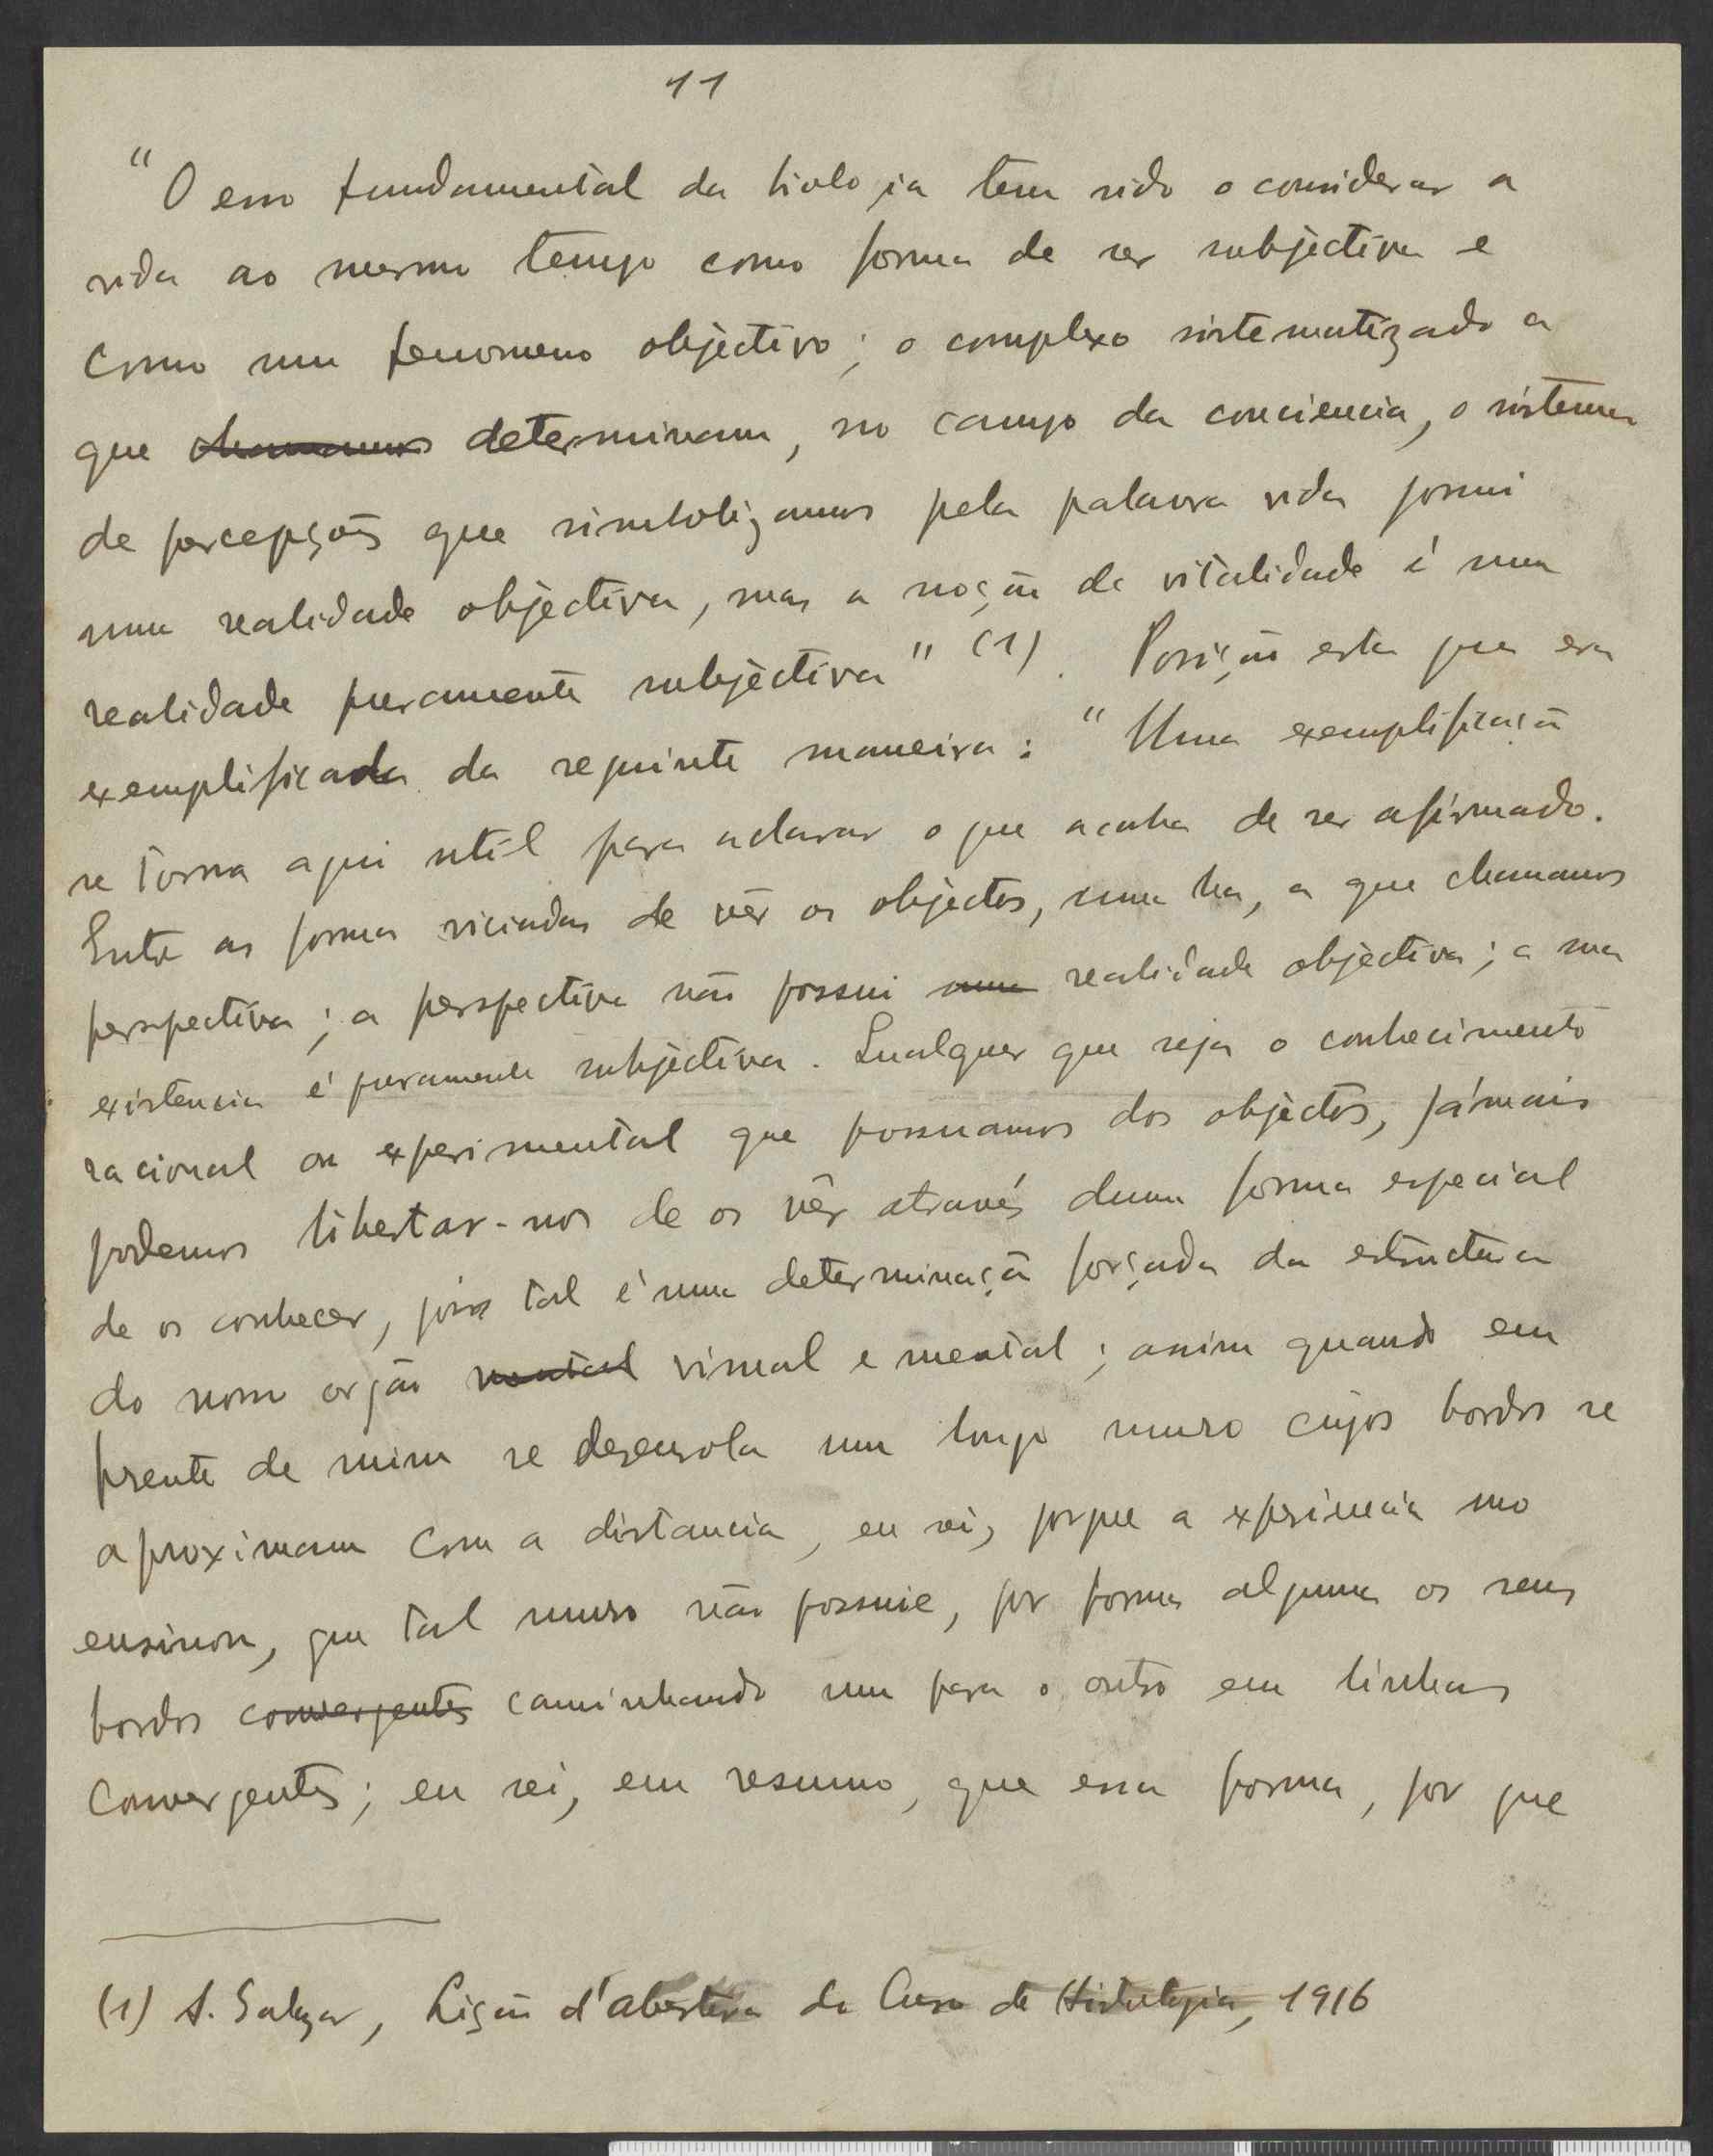 11
"O erro fundamental da biologia tem sido o considerar a
vida ao mesmo tempo como forma de ser subjectiva e
como um fenomeno objectivo; o complexo sistematizado a
que chamamos determinam, no campo da conciencia, o sistema
de percepções que simbolizamos pela palavra vida possui
uma realidade objectiva, mas a noção de vitalidade é uma
realidade puramente subjectiva" (1). Posição esta que era
exemplificada da seguinte maneira: "Uma exemplificação
se torna aqui util para aclarar o que acaba de ser afirmado.
Entre as formas viciadas de vêr os objectos, uma ha, a que chamamos
perspectiva; a perspectiva não possui uma realidade objectiva; a sua
existencia é puramente subjectiva. Qualquer que seja o conhecimento
racional ou experimental que possuamos dos objectos, jámais
podemos libertar-nos de os vêr através duma forma especial
de os conhecer, pois tal é uma determinação forçada da estructura
do nosso orgão mental visual e mental; assim quando em
frente de mim se desenrola um longo muro cujos bordos se
aproximam com a distancia, eu sei, porque a experiencia mo
ensinou, que tal muro não possue, por forma alguma os seus
bordos convergentes caminhando um para o outro em linhas
convergentes; eu sei, em resumo, que essa forma, por que
(1) A. Salazar, Lição d'abertura do Curso de Histologia, 1916